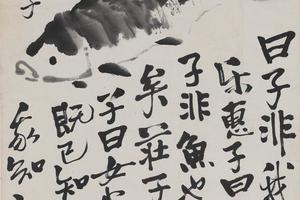 曰子非我
乐惠子曰
子非魚也
矣莊子
子曰女
既已知
我知
子